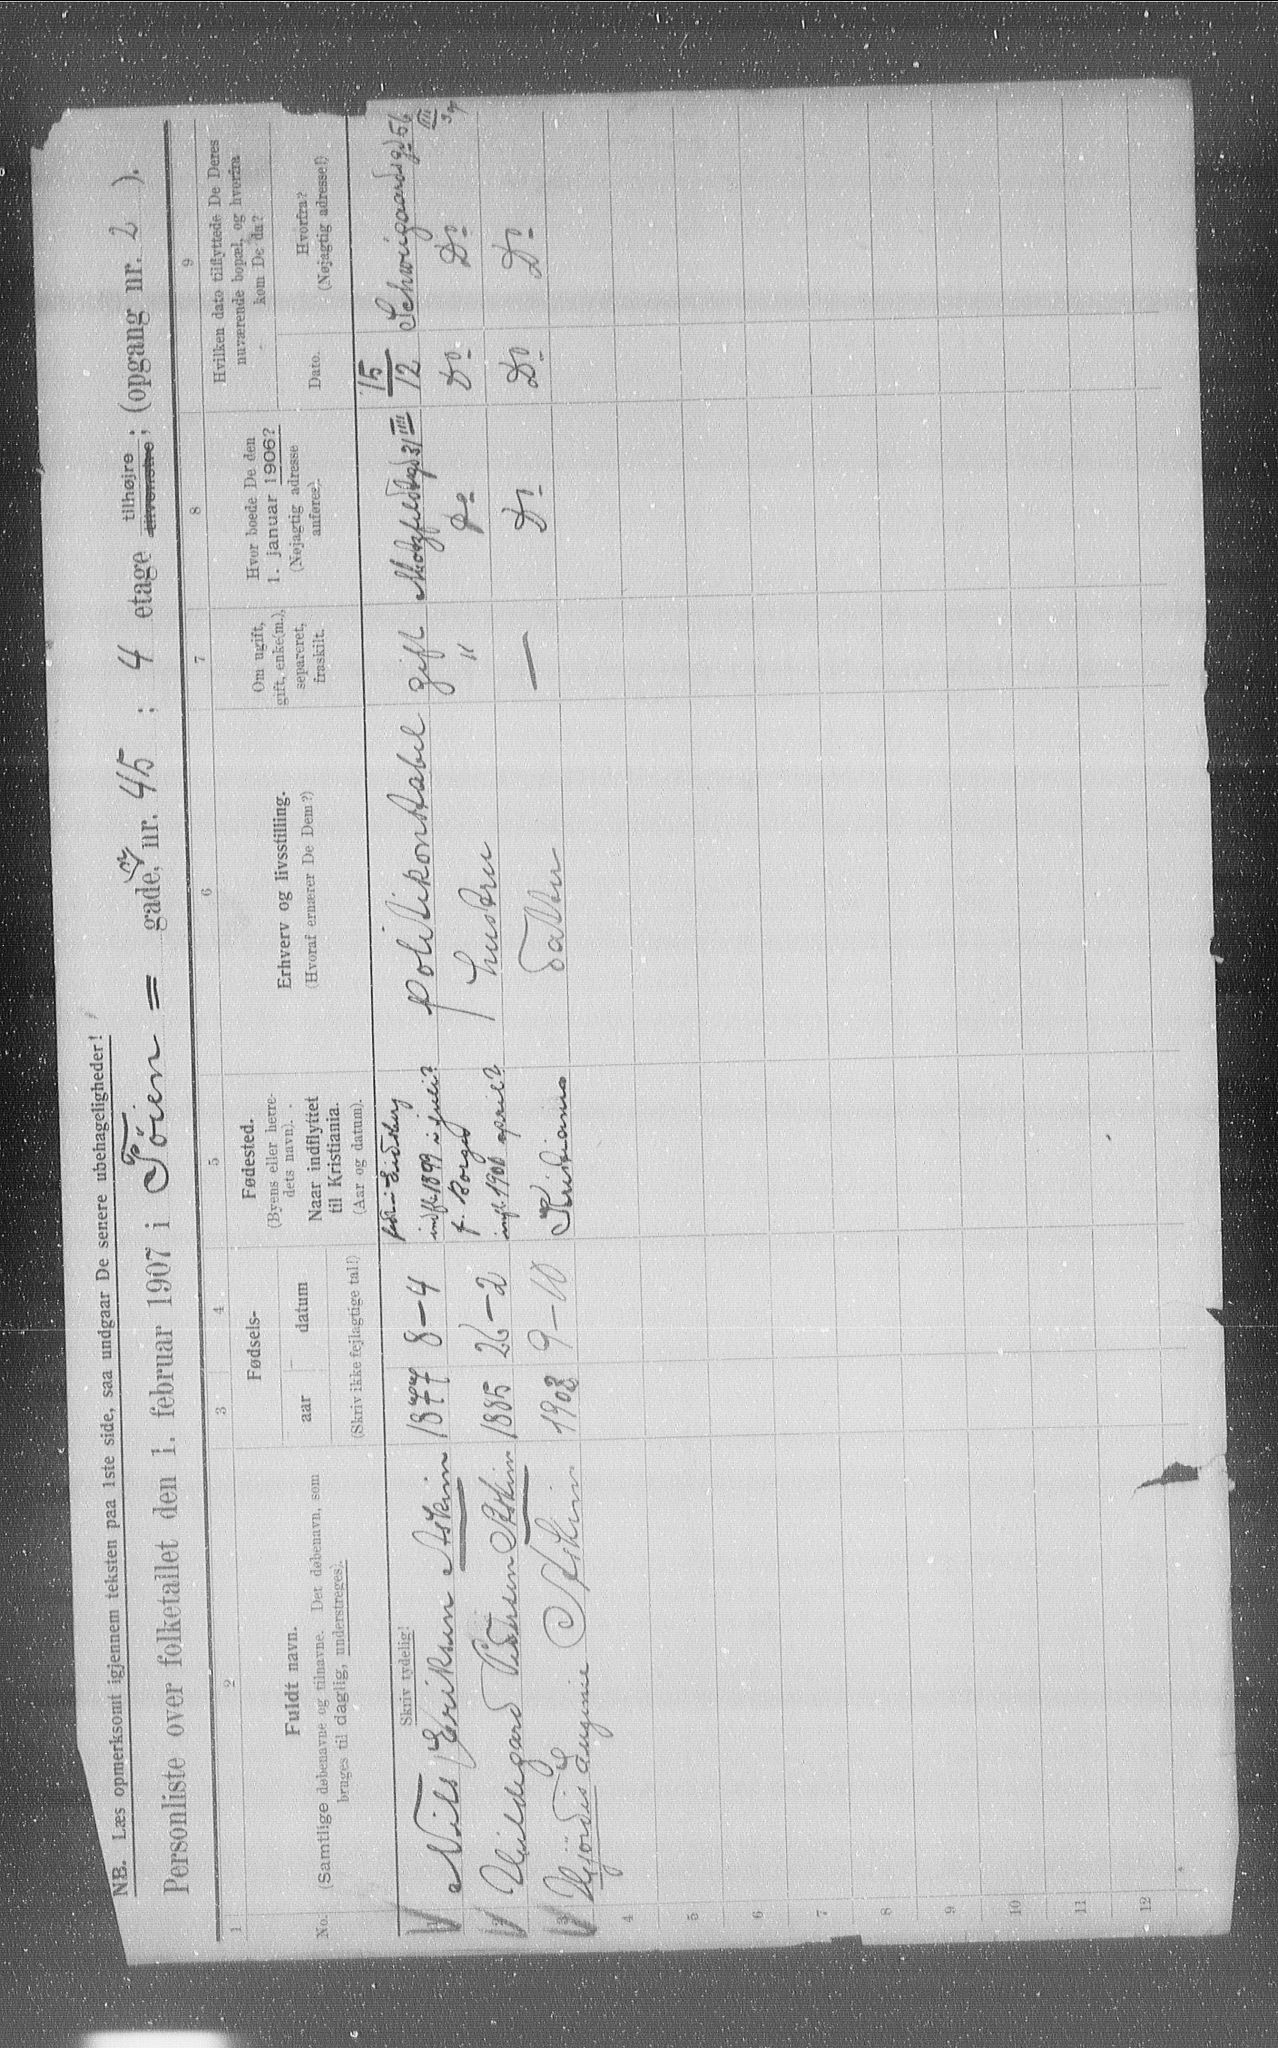 NB. Læs opmerksomt igjennem teksten paa 1ste side, saa undgaar De senere ubehageligheder!
Personliste over folketallet den 1. februar 1907 i Töien = gade, nr. 45 ; 4 etage tilhøjre tilvenstre ; (opgang nr. 2 ).
1 2 3 4 5 6 7 8 9
No.
Fuldt navn.
(Samtlige døbenavne og tilnavne. Det døbenavn, som
bruges til daglig, understreges).
Skriv tydelig!
Fødsels-
aar datum
(Skriv ikke fejlagtige tal!)
Fødested.
(Byens eller herre-
dets navn).
Naar indflyttet
til Kristiania.
(Aar og datum).
Erhverv og livsstilling.
(Hvoraf ernærer De Dem?)
Om ugift,
gift, enke(m.),
separeret,
fraskilt.
Hvor boede De den
1. januar 1906?
(Nøjagtig adresse
anføres).
Hvilken dato tilflyttede De Deres
nuværende bopæl, og hvorfra
kom De da?
Dato.
Hvorfra?
(Nøjagtig adresse!)
1 Nils Eriksen Askim 1877 8-4 indfl. 1899 i juli? Politikonstabel gift Motzfeldtsgd 31 IIII 15/12 Schweigaardsgd 56 III
2 Hildegard Pedersen Askim 1885 26-2 f. Borge indfl. 1900 april? hustru " Do Do Do
3 Hjördis Eugenie Askim 1902 9-10 Kristiania Datter — Do Do Do
4
5
6
7
8
9
10
11
12